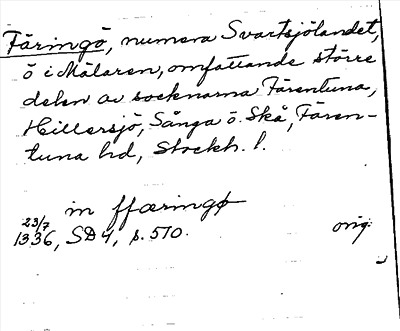 Färingö, numera Svartsjölandet,
ö i Mälaren, omfattande större
delen av socknarna Färentuna,
Hillersjö, Sånga o. Skå, Fären-
tuna hd, Stockh. l.
in ffæringø
23/7
1336, SD 4, s. 570. orig.